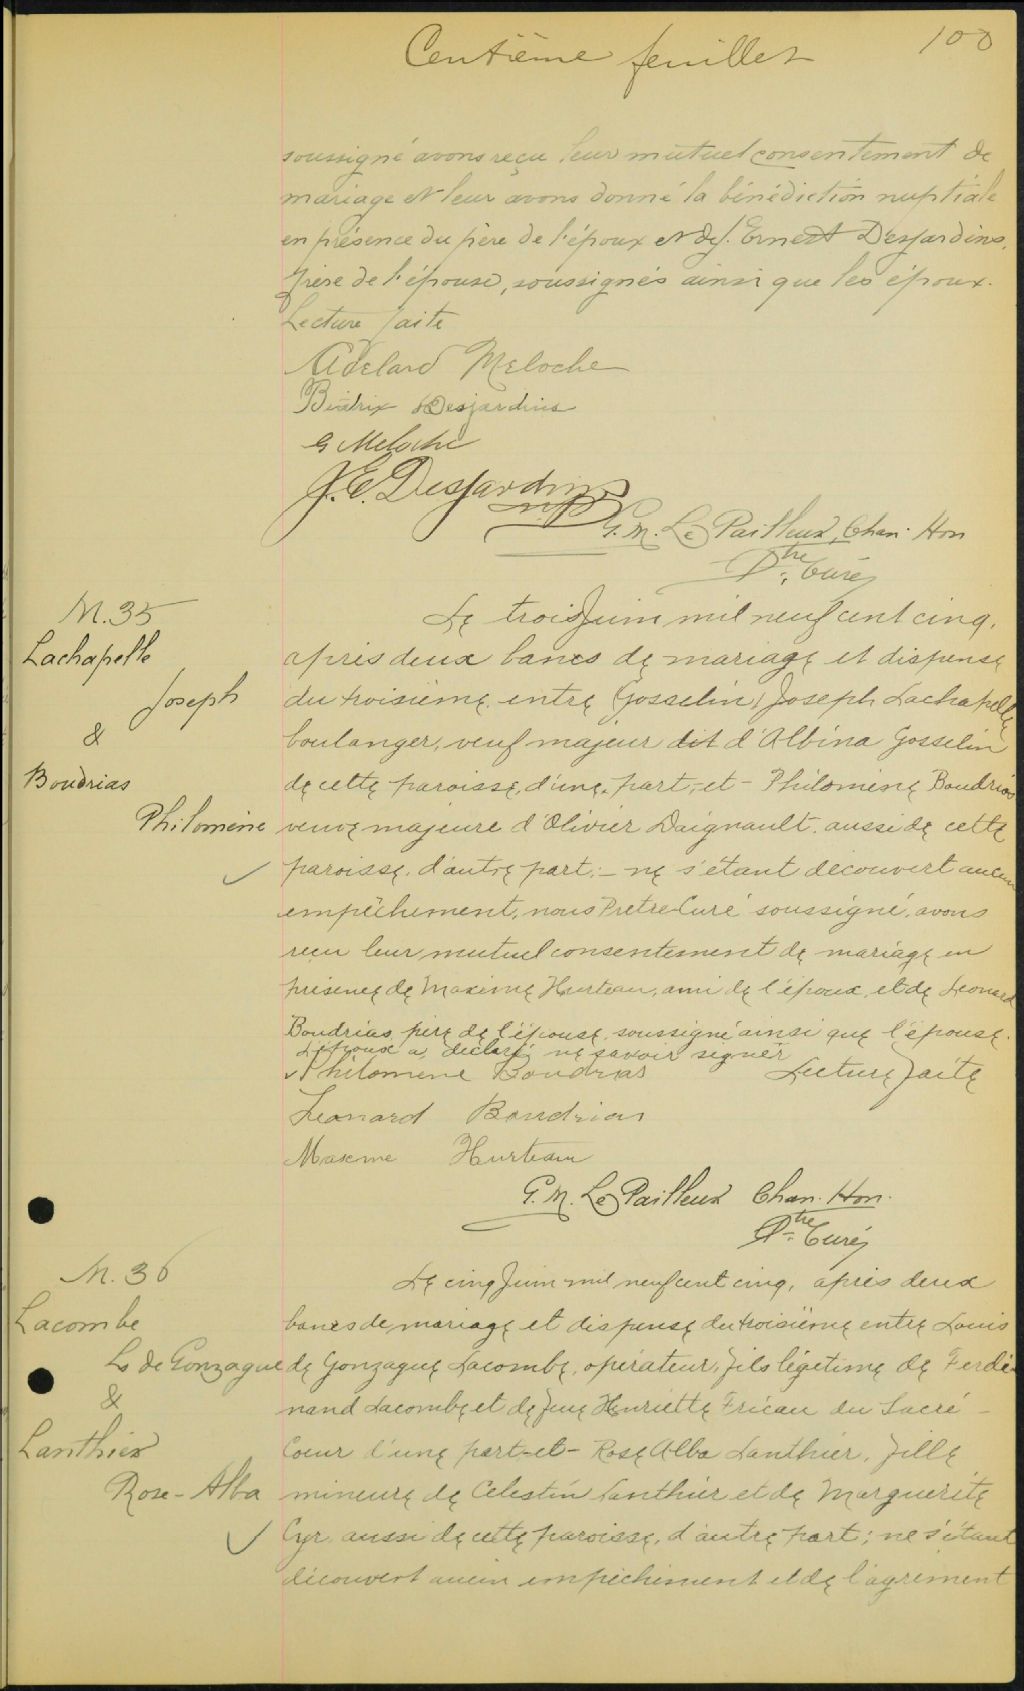 Centième feuillet
100
soussigné avons reçu leur mutuel consentement de
mariage et leur avons donné la bénédiction nuptiale
en présence du père de l'époux et de J. Ernest Desjardins,
frère de l'épouse, soussignés ainsi que les époux.
Lecture faite
Adelard Meloche
Béatrix Desjardins
G Meloche
J. E. Desjardins
G. M. Le Pailleur, Chan. Hon
Ptre Curé
M. 35
Lachapelle
Joseph
&
Boudrias
Philomène
Le trois Juin mil neuf cent cinq,
après deux bancs de mariage et dispense
du troisième entre (Gosselin) Joseph Lachapelle
boulanger, veuf majeur dit d'Albina Gosselin
de cette paroisse, d'une part, et - Philomène Boudrias
veuve majeure d'Olivier Daignault aussi de cette
paroisse, d'autre part; - ne s'étant découvert aucun
empêchement, nous Prêtre Curé soussigné, avons
reçu leur mutuel consentement de mariage en
présence de Maxime Hurteau, ami de l'époux, et de Leonard
Boudrias, père de l'épouse, soussigné ainsi que l'épouse.
L'époux a déclaré ne savoir signer
Philomene Boudrias Lecture faite
Leonard Boudrias
Maxime Hurteau
G. M. Le Pailleur Chan. Hon.
Ptre Curé
M. 36
Lacombe
Ls de Gonzague
&
Lanthier
Rose-Alba
Le cinq Juin mil neuf cent cinq, après deux
bancs de mariage et dispense du troisième entre Louis
de Gonzague Lacombe, opérateur, fils légitime de Ferdi-
nand Lacombe et de feue Henriette Tricau du Sacré-
Coeur d'une part-et- Rose Alba Lanthier, fille
mineure de Célestin Lanthier et de Marguerite
Cyr aussi de cette paroisse, d'autre part; ne s'étant
découvert aucun empêchement et de l'agrément